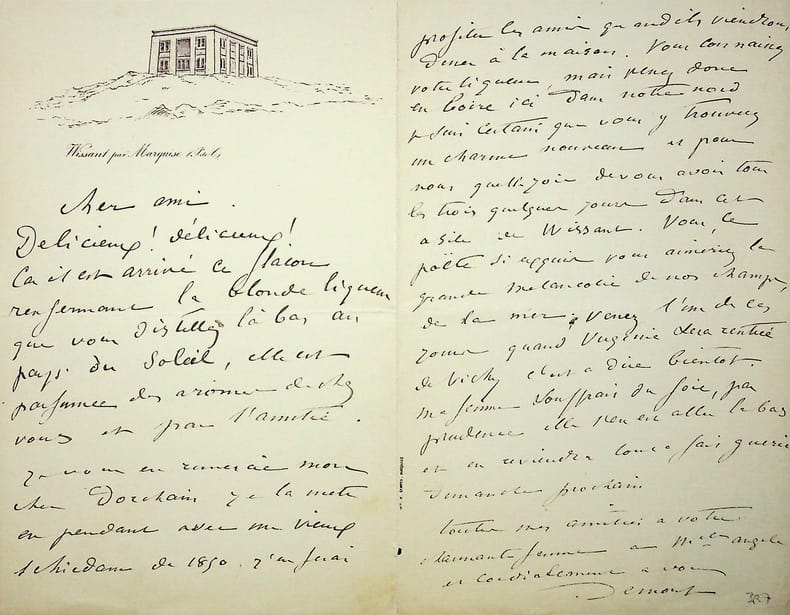 Wissant par Marquise (P. de C.)
cher ami.
Delicieux! délicieux!
Ca il est arrivé ce flacon
renfermant la blonde liqueur
que vous distillez là bas au
pays du Soleil, elle est
parfumée des aromes de chez
vous et par l'amitié.
je vous en remercie mon
cher Dorchain je la mets
en pendant avec un vieux
schiedam de 1850. j'en ferai
profiter les amis quand ils viendront
diner à la maison. Vous connaissez
votre liqueur, mais venez donc
en boire ici dans notre nord
je suis certain que vous y trouverez
un charme nouveau et pour
nous quelle joie de vous avoir tous
les trois quelques jours dans cet
asile de Wissant. Vous, le
poëte si exquis vous aimeriez la
grande melancolie de nos champs,
de la mer. Venez l'un de ces
jours quand Virginie sera rentrée
de Vichy c'est a dire bientot.
ma femme souffrait du foie, par
prudence elle s'en est allée la bas
et en reviendra tout a fait guerie
dimanche prochain
toutes mes amitiés a votre
charmante femme a Mlle angele
et cordialement a vous
Demont
387